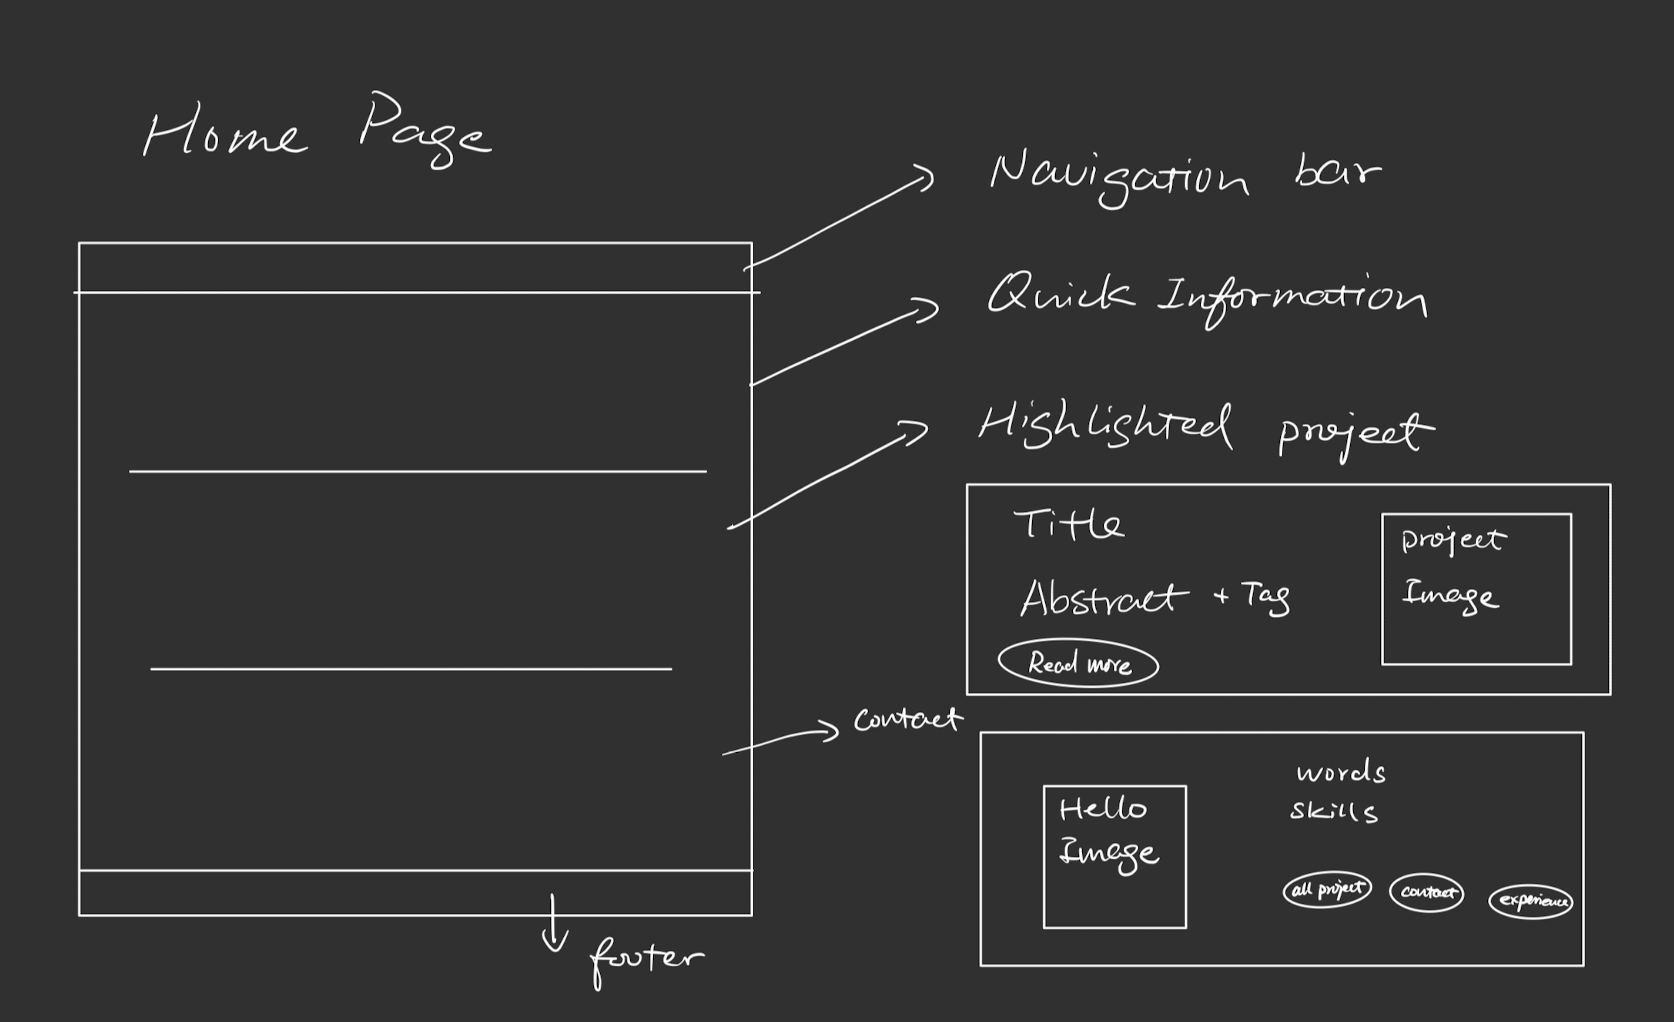 Home Page
Navigation bar
Quick Information
Highlighted project
Title
Abstract + Tag
Read more
project
Image
Contact
Hello
Image
words
skills
all project
contact
experience
footer